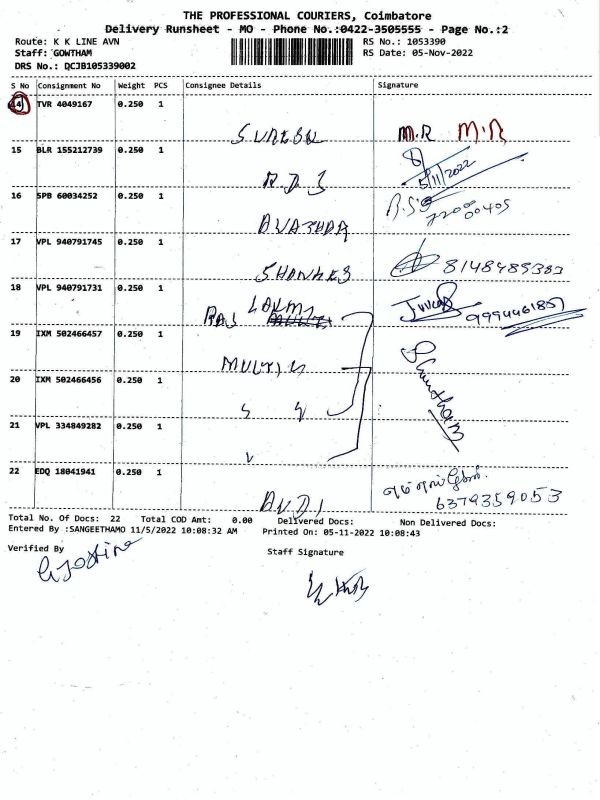 THE PROFESSIONAL COURIERS, Coimbatore
Delivery Runsheet - MO - Phone No.:0422-3505555 - Page No.:2
Route: K K LINE AVN RS No.: 1053390
Staff: GOWTHAM RS Date: 05-Nov-2022
DRS No.: QCJB105339002
S No Consignment No Weight PCS Consignee Details Signature
14 TVR 4049167 0.250 1
M.R M.R
15 BLR 155212739 0.250 1
5/11/2022
16 SPB 60034252 0.250 1
17 VPL 940791745 0.250 1
8148489383
18 VPL 940791731 0.250 1
RAJ LAXMI
9994461857
19 IXM 502466457 0.250 1
20 IXM 502466456 0.250 1
21 VPL 334849282 0.250 1
22 EDQ 18041941 0.250 1
6379359053
Total No. Of Docs: 22 Total COD Amt: 0.00 Delivered Docs: Non Delivered Docs:
Entered By :SANGEETHAMO 11/5/2022 10:08:32 AM Printed On: 05-11-2022 10:08:43
Verified By Staff Signature